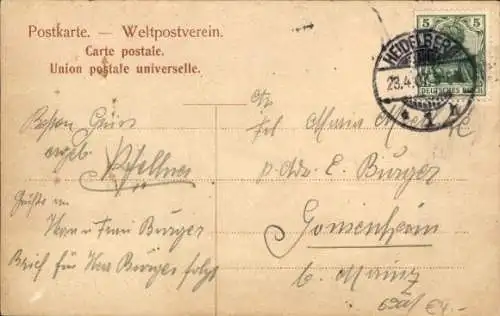 Postkarte. — Weltpostverein.
Carte postale.
Union postale universelle.
5 5
DEUTSCHES REICH
HEIDELBERG
23.4.
1 h
Besten Gruss
ergeb.
Pfellner
Grüße an
Herrn u Frau Bürger
Brief für Herr Bürger folgt
An
Frl Maria
p. Adr. E. Bürger
Gonsenheim
b. Mainz